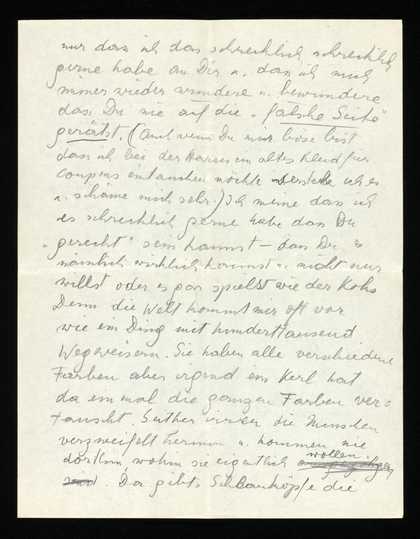 nur dass ich das schrecklich schrecklich
gerne habe an Dir u. dass ich mich
immer wieder wundere u. bewundere
dass Du nie auf die "falshe Seite"
gerätst. (Auch wenn Du mir böse bist
dass ich bei der Harris ein altes Kleid für
Coupons eintauschen möchte verstehe ich es
u. schäme mich sehr.) Ich meine dass ich
es schrecklich gerne habe dass Du
"gerecht" sein kannst – dass Du es
nämlich wirklich kannst u. nicht nur
willst oder es gar spielst wie der Koko
Denn die Welt kommt mir oft vor
wie ein Ding mit hunderttausend
Wegweisern. Sie haben alle verschiedene
Farben aber irgend ein Kerl hat
da einmal die ganzen Farben ver-
tauscht. Seither irren die Menschen
verzweifelt herum u. kommen nie
dorthin wohin sie eigentlich wollen
. Da gibts Schlauköpfe die